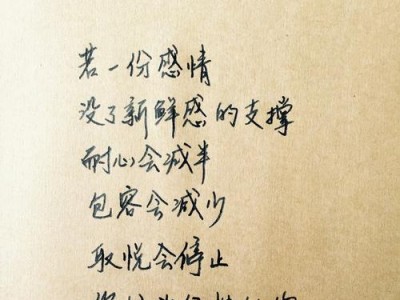 若一份感情
没了新鲜感的支撑
耐心会减半
包容会减少
取悦会停止